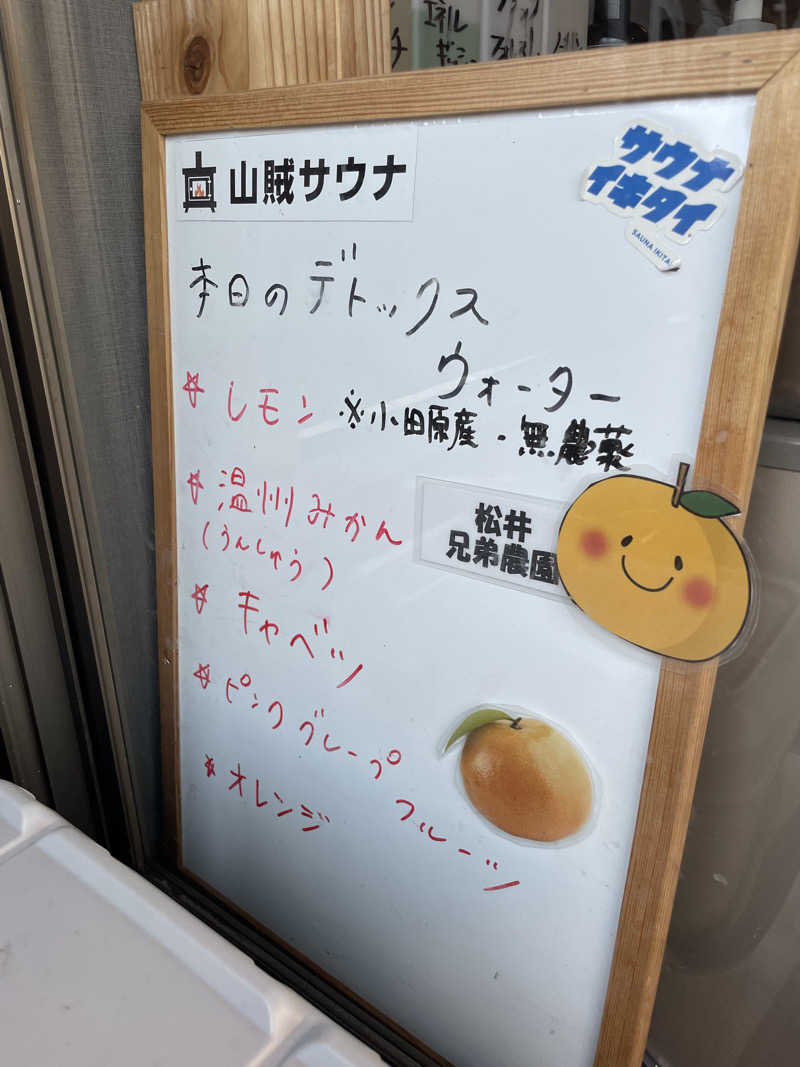 エネル
ギー
山賊サウナ
サウナ
イキタイ
SAUNA IKITAI
本日のデトックス
ウォーター
☆レモン ※小田原産・無農薬
☆温州みかん
(うんしゅう)
松井
兄弟農園
☆キャベツ
☆ピンクグレープ
フルーツ
☆オレンジ